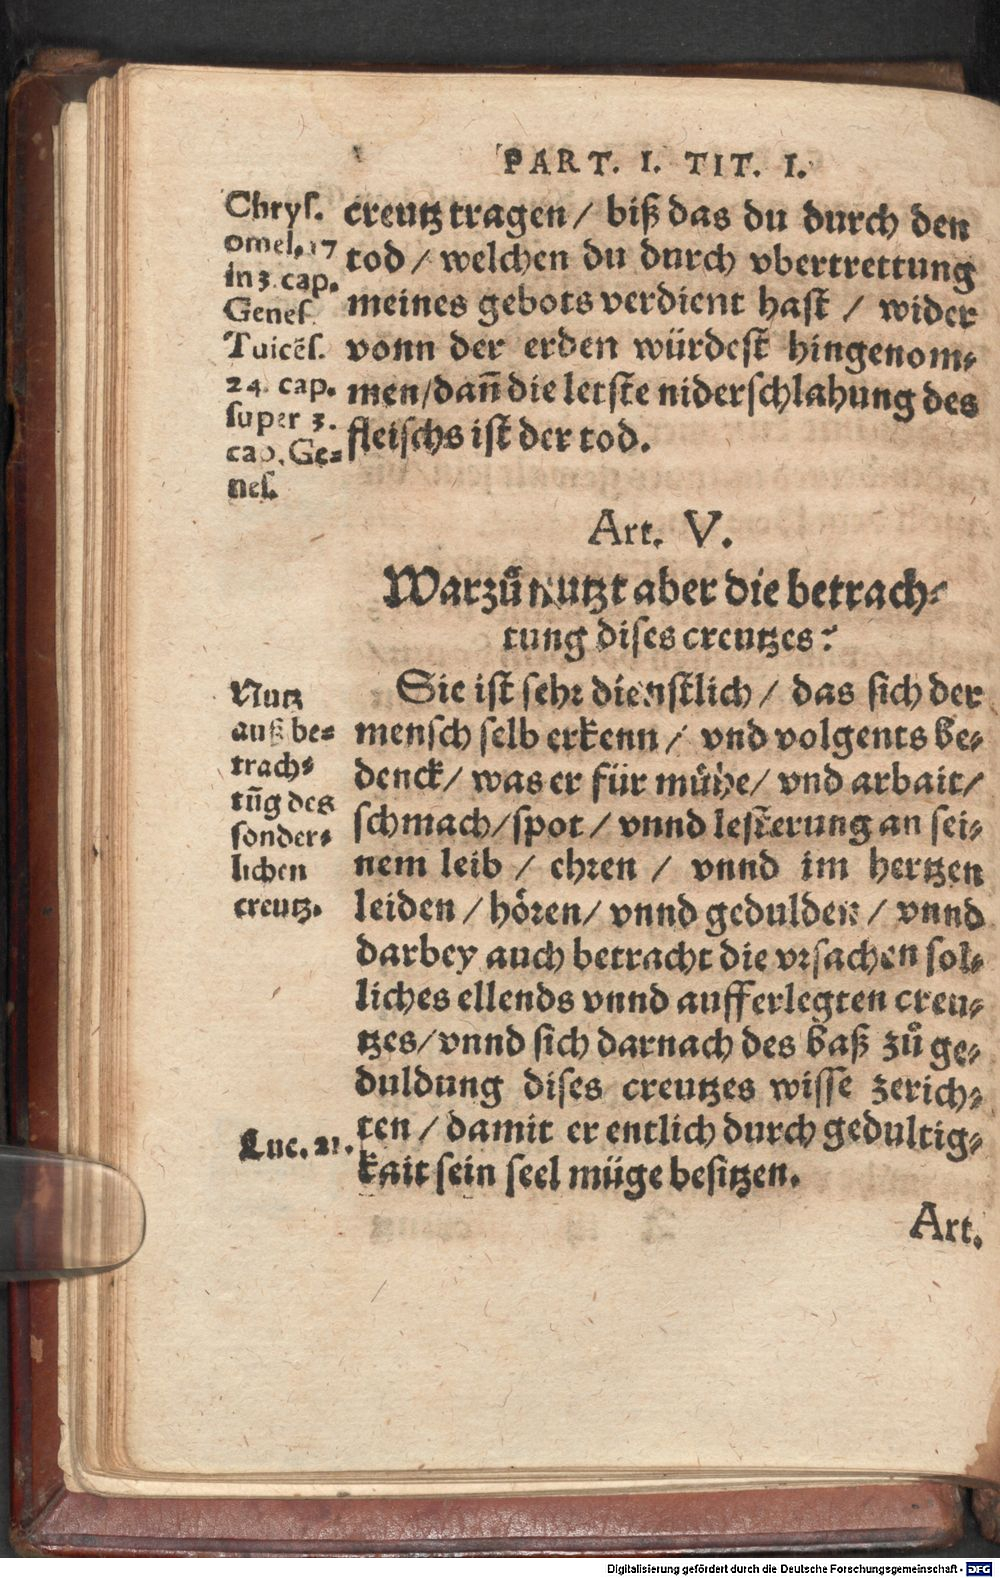 PART. I. TIT. I.
Chrys.
omel. 17
in 3. cap.
Genes.
Tuicēs.
24. cap.
super 3.
cap. Ge=
nes.
creutz tragen / biß das du durch den
tod / welchen du durch vbertrettung
meines gebots verdient hast / wider
vonn der erden würdest hingenom=
men / dañ die letste niderschlahung des
fleischs ist der tod.
Art. V.
Warzů nutzt aber die betrach=
tung dises creutzes?
Nutz
auß be=
trach=
tūg des
sonder=
lichen
creutz.
Sie ist sehr dienstlich / das sich der
mensch selb erkenn / vnd volgents be=
denck / was er für mühe / vnd arbait /
schmach / spot / vnnd lesterung an sei=
nem leib / ehren / vnnd im hertzen
leiden / hören / vnnd gedulden / vnnd
darbey auch betracht die vrsachen sol=
liches ellends vnnd aufferlegten creu=
tzes / vnnd sich darnach des baß zů ge=
duldung dises creutzes wisse zerich=
Luc. 21.
ten / damit er entlich durch gedultig=
kait sein seel müge besitzen.
Art.
Digitalisierung gefördert durch die Deutsche Forschungsgemeinschaft - DFG